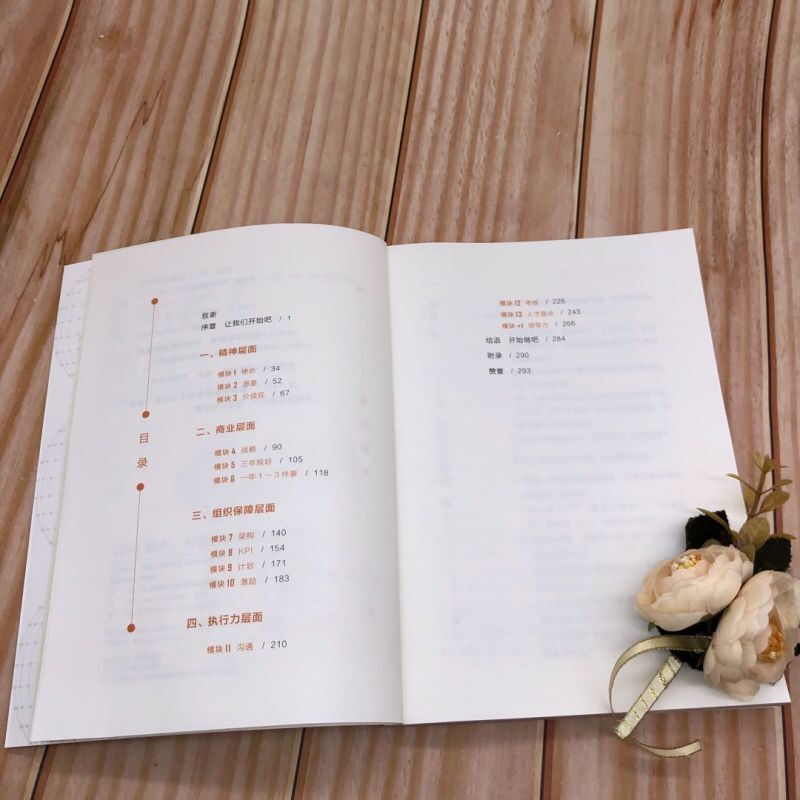 目
录
致谢
序章 让我们开始吧 / 1
一、精神层面
模块 1 使命 / 34
模块 2 愿景 / 52
模块 3 价值观 / 67
二、商业层面
模块 4 战略 / 90
模块 5 三年规划 / 105
模块 6 一年 1～3 件事 / 118
三、组织保障层面
模块 7 架构 / 140
模块 8 KPI / 154
模块 9 计划 / 171
模块 10 激励 / 183
四、执行力层面
模块 11 沟通 / 210
模块 12 考核 / 226
模块 13 人才盘点 / 243
模块 +1 领导力 / 266
结语 开始做吧 / 284
附录 / 290
赞誉 / 293